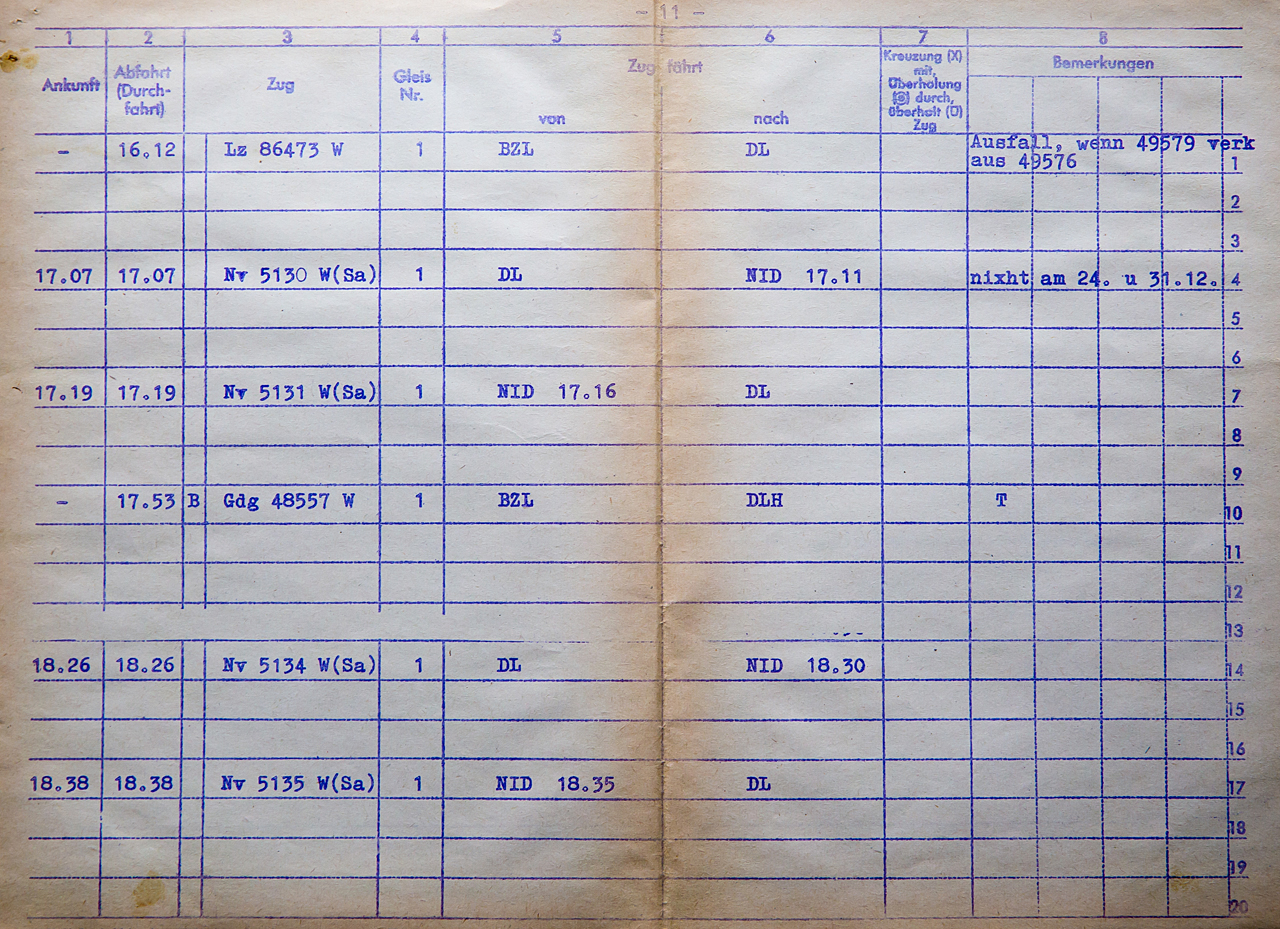 - 11 -
1 2 3 4 5 6 7 8
Ankunft Abfahrt (Durch-fahrt) Zug Gleis Nr. Zug fährt von nach Kreuzung (X) mit, Überholung durch, überholt (Ü) Zug Bemerkungen
- 16.12 Lz 86473 W 1 BZL DL Ausfall, wenn 49579 verk
aus 49576 1
2
3
17.07 17.07 Nv 5130 W(Sa) 1 DL NID 17.11 nixht am 24. u 31.12. 4
5
6
17.19 17.19 Nv 5131 W(Sa) 1 NID 17.16 DL 7
8
9
- 17.53 B Gdg 48557 W 1 BZL DLH T 10
11
12
13
18.26 18.26 Nv 5134 W(Sa) 1 DL NID 18.30 14
15
16
18.38 18.38 Nv 5135 W(Sa) 1 NID 18.35 DL 17
18
19
20